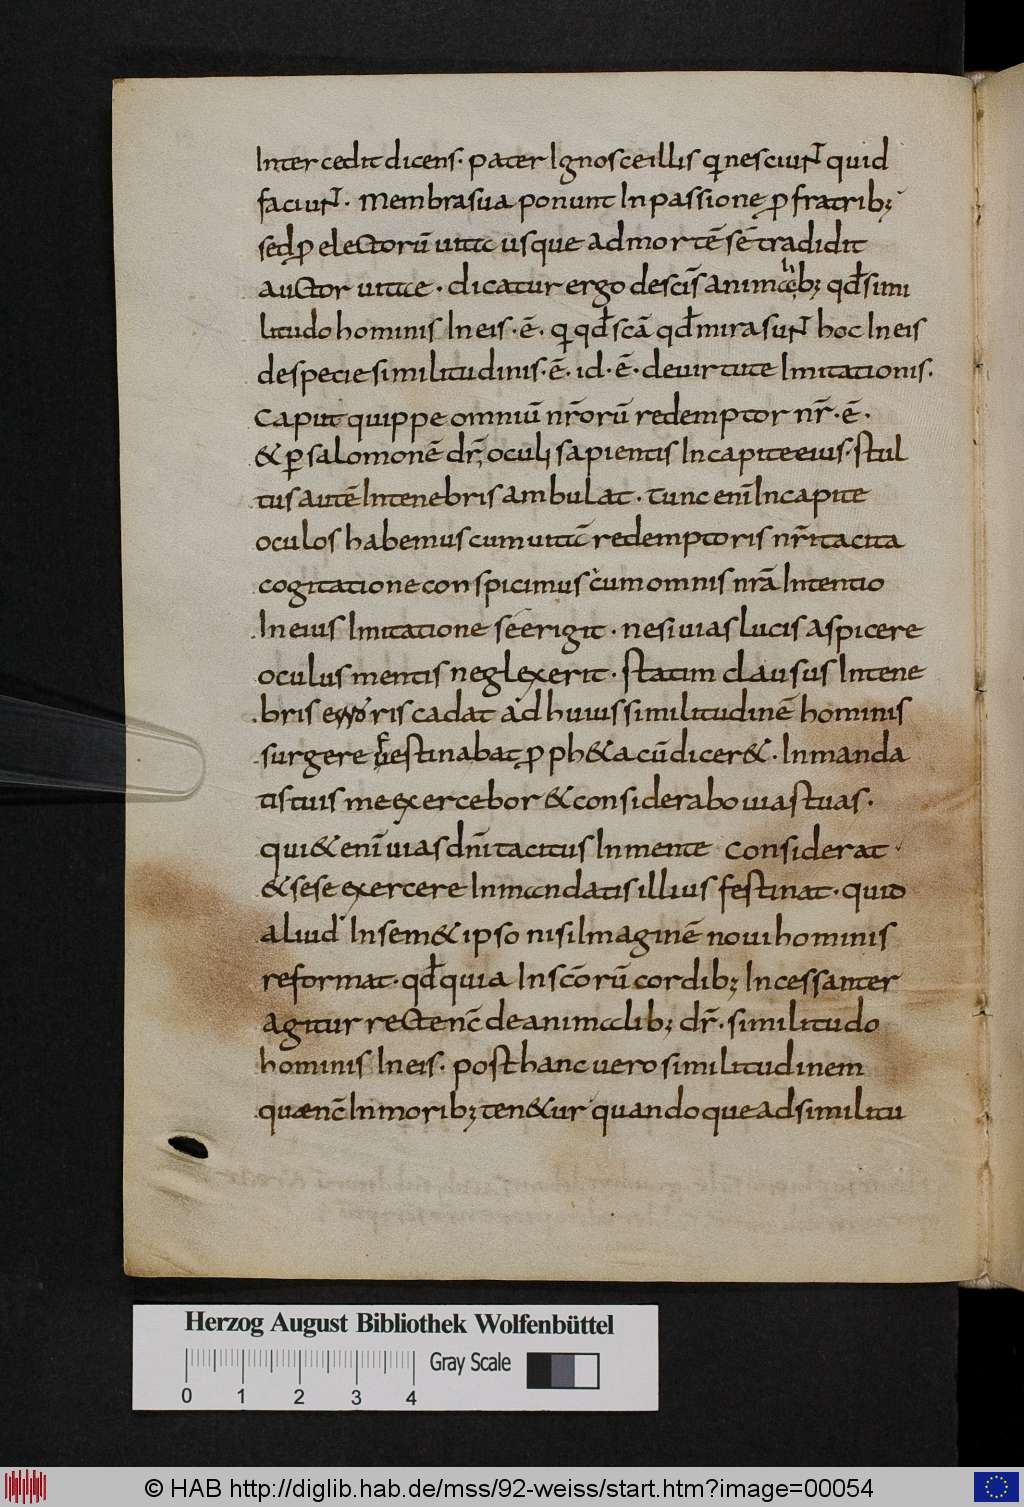 Intercedit dicens. pater Ignosce illis q̅ nesciuɴ̅ quid
faciuɴ̅. Membra sua ponunt In passione ꝓ fratrib;
sed ꝓ electorū uita usque ad mortē sē tradidit
auctor uitae. dicatur ergo de sc̄is animalib; qđ simi
litudo hominis In eis .ē. q̅ qđ sc̄ā qđ mira suɴ̅ hoc In eis
de specie similitudinis .ē. id .ē. de uirtute Imitationis.
Caput quippe omniū nr̄orū redemptor nr̄ .ē.
& ꝑ salomonē dr̄; oculi sapientis In capite eius. stul
tus autē In tenebris ambulat. Tunc enī In capite
oculos habemus cum uitā redemptoris nr̄i tacita
cogitatione conspicimus cum omnis nr̄a Intentio
In eius Imitatione se erigit. ne si uias lucis aspicere
oculus mentis neglexerit. statim clausus In tene
bris erroris cadat ad huius similitudinē hominis
surgere festinabat ꝓph&a cū dicer&. In manda
tis tuis me exercebor & considerabo uias tuas.
qui &enī uias dn̄i tacitus In mente considerat
& sese exercere In mandatis illius festinat. quid
aliud In sem&ipso nisi Imaginē noui hominis
reformat. qđ quia In sc̄orū cordib; Incessanter
agitur recte nc̄ de animalib; dr̄. similitudo
hominis In eis. post hanc uero similitudinem
quae nc̄ In morib; ten&ur quandoque ad similitu
Herzog August Bibliothek Wolfenbüttel
Gray Scale
0 1 2 3 4
© HAB http://diglib.hab.de/mss/92-weiss/start.htm?image=00054